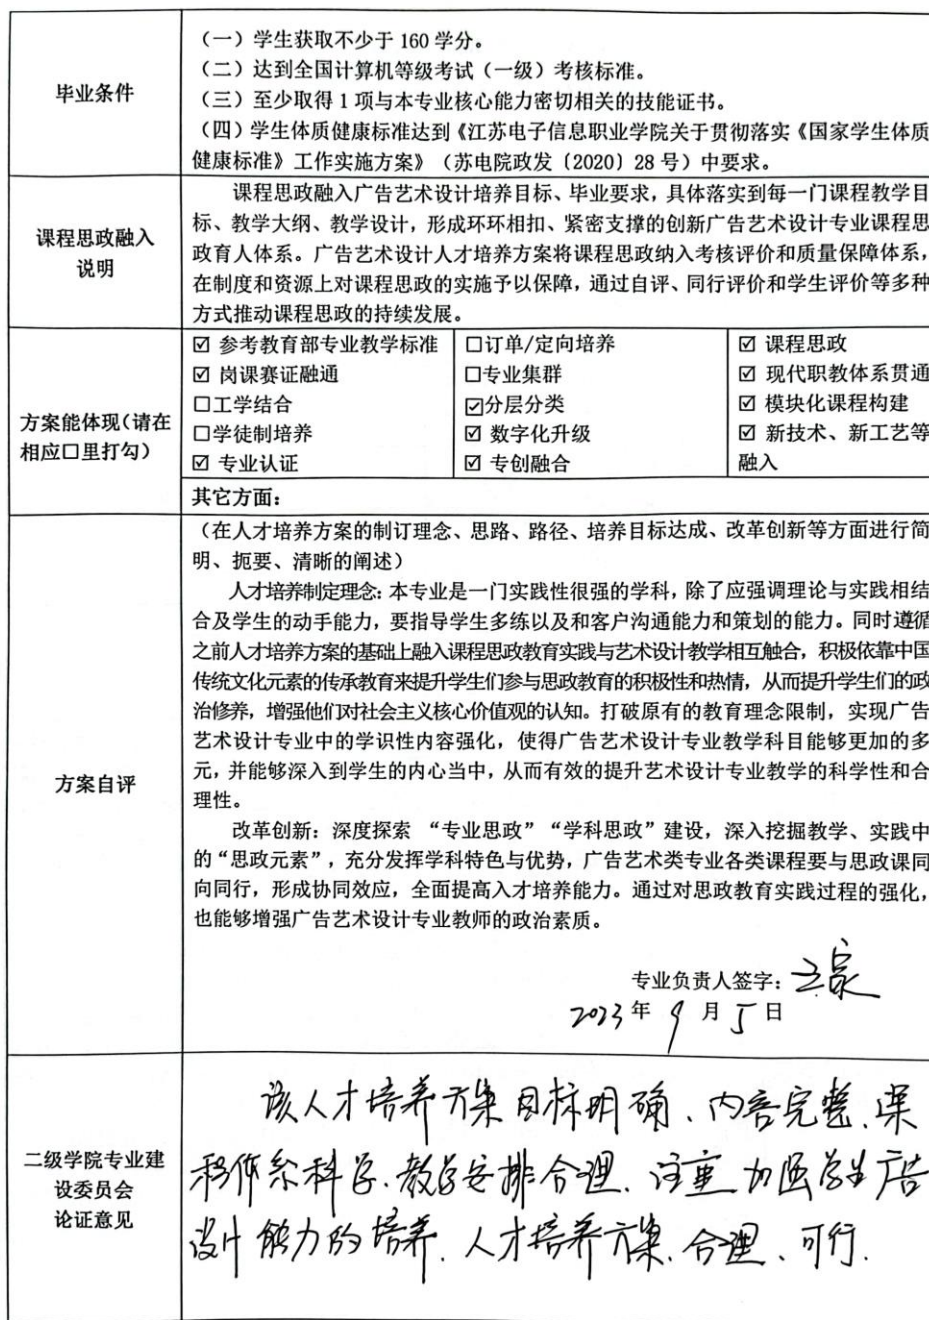 毕业条件
（一）学生获取不少于 160 学分。
（二）达到全国计算机等级考试（一级）考核标准。
（三）至少取得 1 项与本专业核心能力密切相关的技能证书。
（四）学生体质健康标准达到《江苏电子信息职业学院关于贯彻落实《国家学生体质
健康标准》工作实施方案》（苏电院政发〔2020〕28 号）中要求。
课程思政融入
说明
课程思政融入广告艺术设计培养目标、毕业要求，具体落实到每一门课程教学目
标、教学大纲、教学设计，形成环环相扣、紧密支撑的创新广告艺术设计专业课程思
政育人体系。广告艺术设计人才培养方案将课程思政纳入考核评价和质量保障体系，
在制度和资源上对课程思政的实施予以保障，通过自评、同行评价和学生评价等多种
方式推动课程思政的持续发展。
方案能体现（请在
相应□里打勾）
☑ 参考教育部专业教学标准
☑ 岗课赛证融通
□工学结合
□学徒制培养
☑ 专业认证
□订单/定向培养
□专业集群
☑分层分类
☑ 数字化升级
☑ 专创融合
☑ 课程思政
☑ 现代职教体系贯通
☑ 模块化课程构建
☑ 新技术、新工艺等
融入
其它方面：
方案自评
（在人才培养方案的制订理念、思路、路径、培养目标达成、改革创新等方面进行简
明、扼要、清晰的阐述）
人才培养制定理念：本专业是一门实践性很强的学科，除了应强调理论与实践相结
合及学生的动手能力，要指导学生多练以及和客户沟通能力和策划的能力。同时遵循
之前人才培养方案的基础上融入课程思政教育实践与艺术设计教学相互触合，积极依靠中国
传统文化元素的传承教育来提升学生们参与思政教育的积极性和热情，从而提升学生们的政
治修养，增强他们对社会主义核心价值观的认知。打破原有的教育理念限制，实现广告
艺术设计专业中的学识性内容强化，使得广告艺术设计专业教学科目能够更加的多
元，并能够深入到学生的内心当中，从而有效的提升艺术设计专业教学的科学性和合
理性。
改革创新：深度探索 “专业思政”“学科思政”建设，深入挖掘教学、实践中
的“思政元素”，充分发挥学科特色与优势，广告艺术类专业各类课程要与思政课同
向同行，形成协同效应，全面提高入才培养能力。通过对思政教育实践过程的强化，
也能够增强广告艺术设计专业教师的政治素质。
专业负责人签字：
2023 年 9 月 5 日
二级学院专业建
设委员会
论证意见
该人才培养方案目标明确、内容完整、课
程体系科学、教学安排合理、注重加强学生广告
设计能力的培养、人才培养方案、合理、可行.